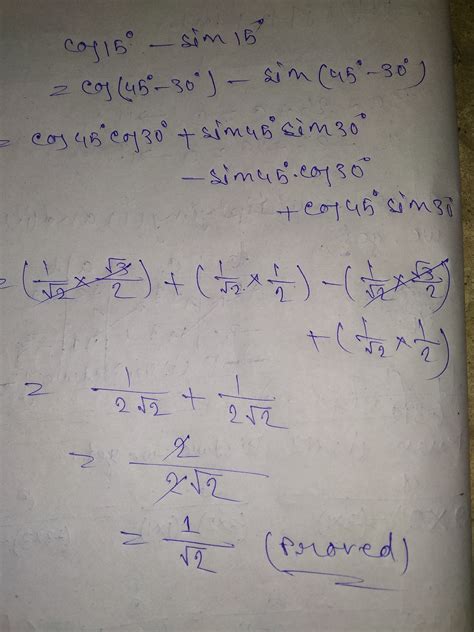 cos15° - sin15°
= cos(45° - 30°) - sin(45° - 30°)
= cos45° cos30° + sin45° sin30°
- sin45°. cos30°
+ cos45° sin30
= (1/√2 × √3/2) + (1/√2 × 1/2) - (1/√2 × √3/2)
+ (1/√2 × 1/2)
= 1/2√2 + 1/2√2
= 2/2√2
= 1/√2 (Proved)